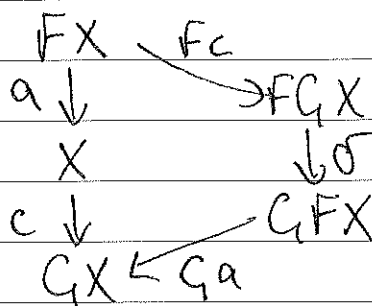 FX Fc
a FGX
X σ
c GFX
GX Ga